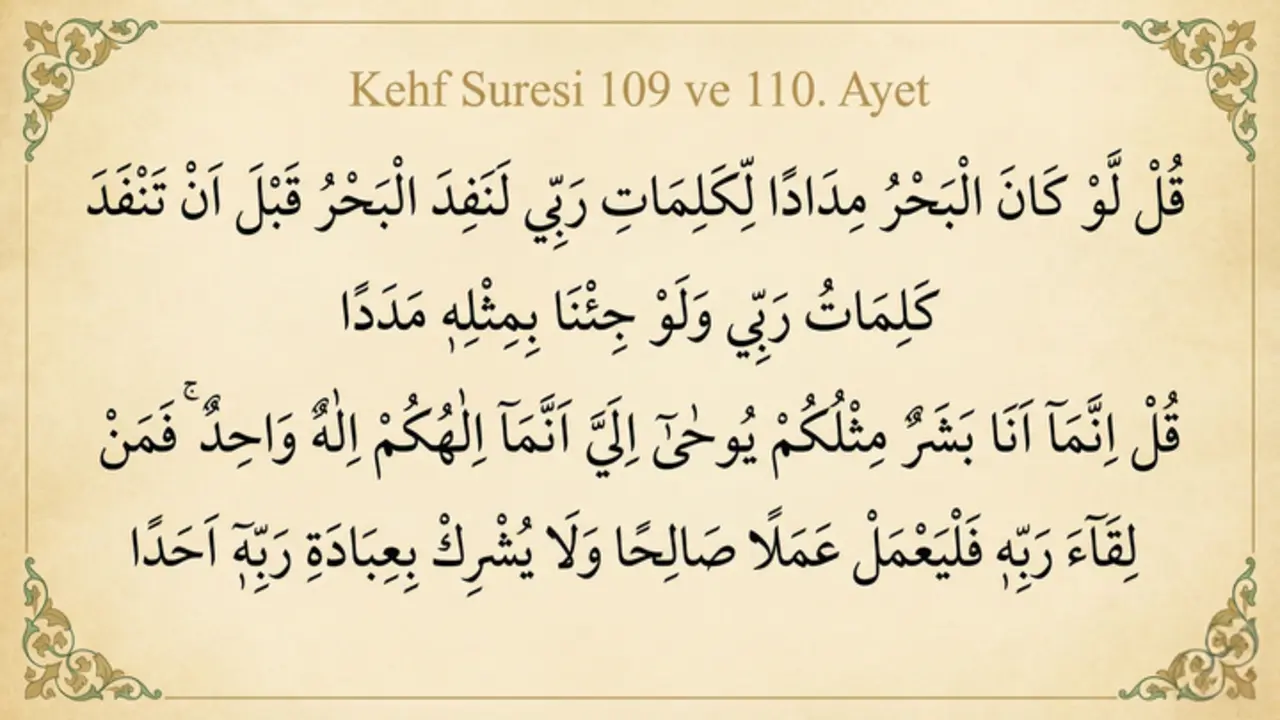 Kehf Suresi 109 ve 110. Ayet
قُلْ لَّوْ كَانَ الْبَحْرُ مِدَادًا لِّكَلِمَاتِ رَبِّي لَنَفِدَ الْبَحْرُ قَبْلَ اَنْ تَنْفَدَ
كَلِمَاتُ رَبِّي وَلَوْ جِئْنَا بِمِثْلِهٖ مَدَدًا
قُلْ اِنَّمَآ اَنَا بَشَرٌ مِثْلُكُمْ يُوحٰىٓ اِلَيَّ اَنَّمَآ اِلٰهُكُمْ اِلٰهٌ وَاحِدٌ ۚ فَمَنْ
لِقَآءَ رَبِّهٖ فَلْيَعْمَلْ عَمَلًا صَالِحًا وَلَا يُشْرِكْ بِعِبَادَةِ رَبِّهٖٓ اَحَدًا